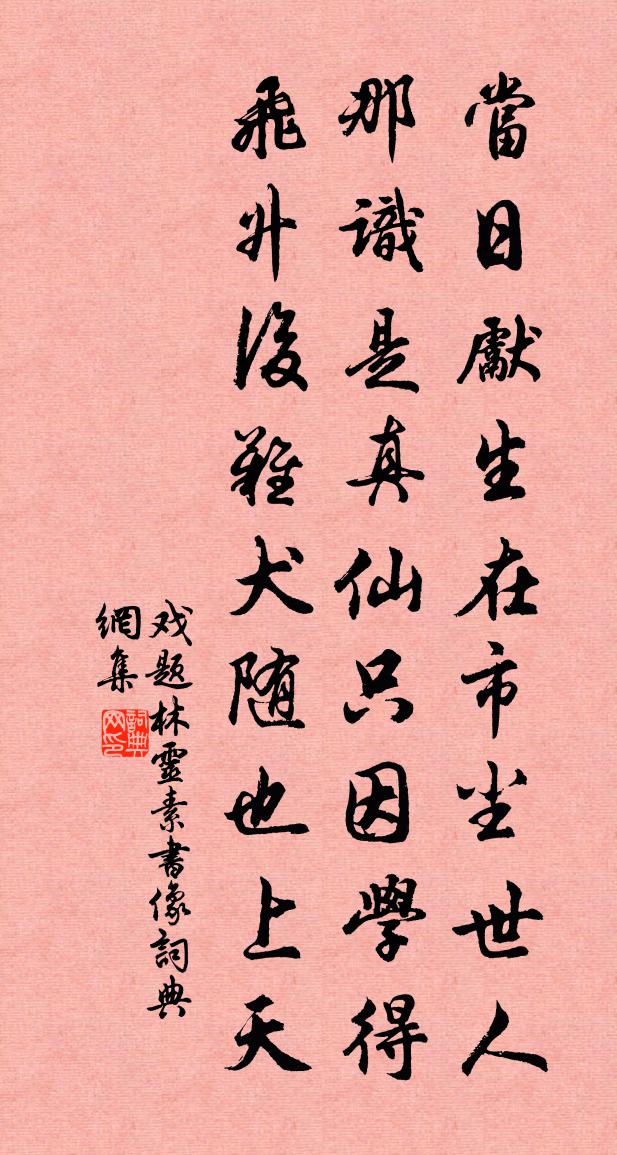 當日獻生在市尘世人
那識是真仙只因學得
飛升後雞犬随也上天
戏題林靈素書像詞典
網集
詞典
网印